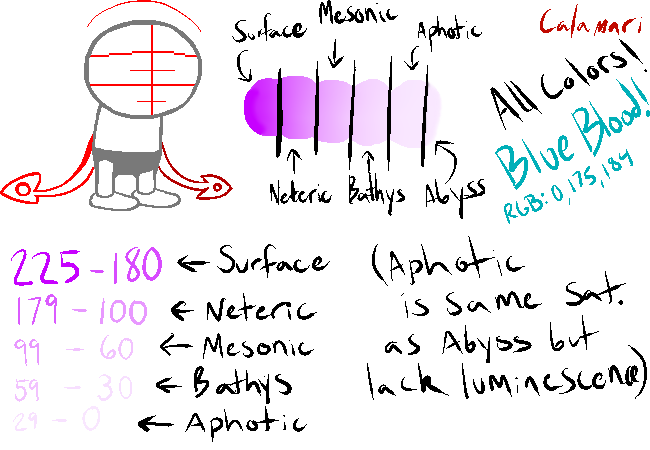 Calamari
Surface
Mesonic
Aphotic
Neteric
Bathys
Abyss
All Colors!
Blue Blood!
RGB: 0,175,184
225-180 ← Surface
179 - 100 ← Neteric
99 - 60 ← Mesonic
59 - 30 ← Bathys
29 - 0 ← Aphotic
(Aphotic
is same sat.
as Abyss but
lack luminescence)